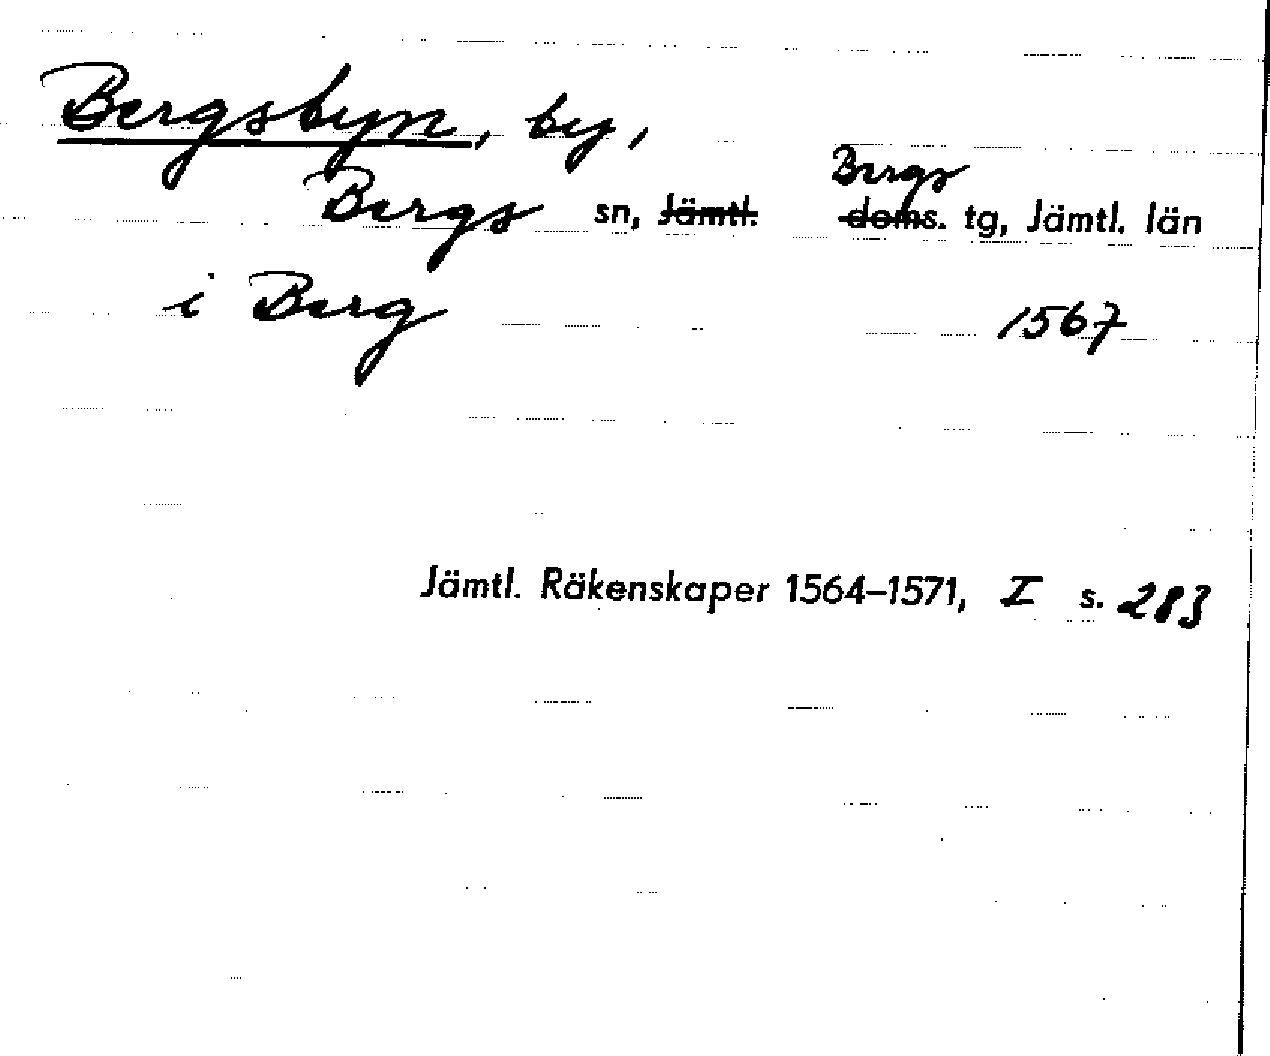 Bergsbyn, by,
Bergs sn, Jämtl. Bergs doms. tg, Jämtl. län
i Berg 1567
Jämtl. Räkenskaper 1564–1571, I s. 283